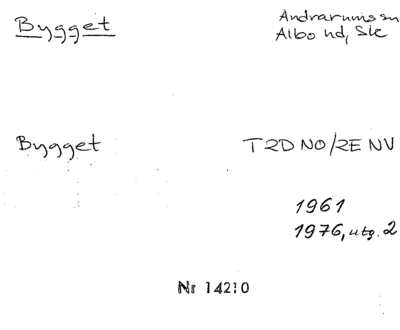 Bygget
Andrarums sn
Albo hd, Sk
Bygget
T 2D NO/2E NV
1961
1976, utg. 2
Nr 14210